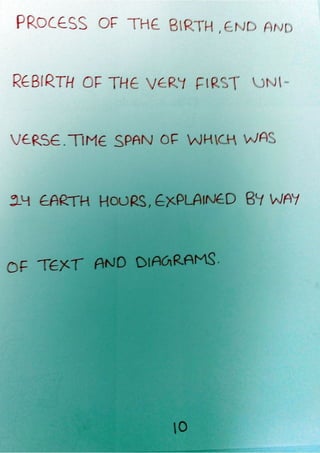 PROCESS OF THE BIRTH, END AND
REBIRTH OF THE VERY FIRST UNI-
VERSE. TIME SPAN OF WHICH WAS
24 EARTH HOURS, EXPLAINED BY WAY
OF TEXT AND DIAGRAMS.
10